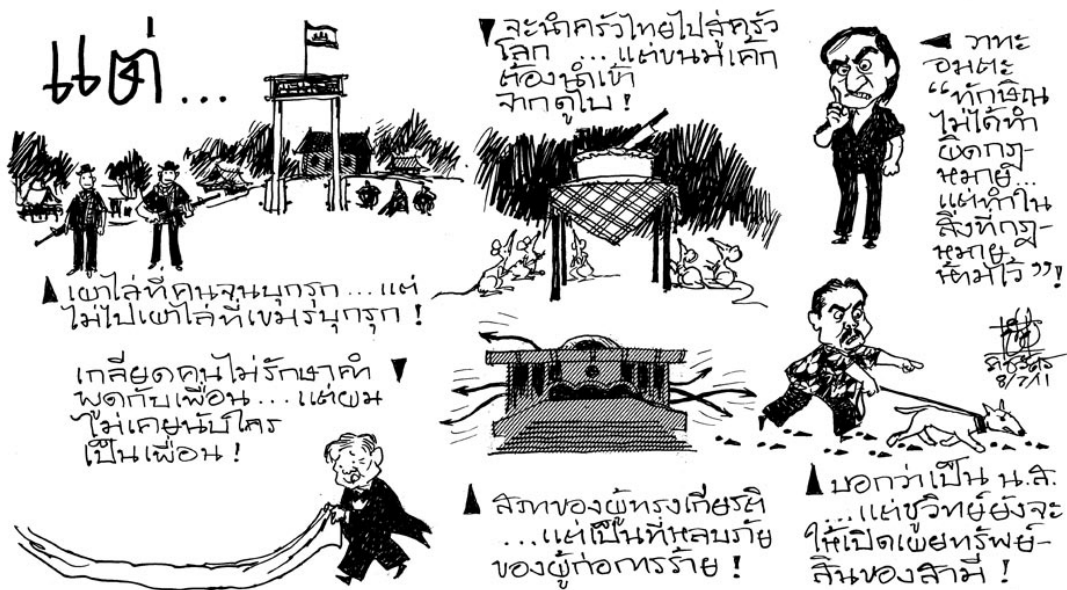 แต่...
▲ เผาไล่ที่คนจนบุกรุก...แต่
ไม่ไปเผาไล่ที่เขมรบุกรุก!
เกลียดคนไม่รักษาคำ
พูดกับเพื่อน...แต่ผม
ไม่เคยนับใคร
เป็นเพื่อน!
▼ จะนำครัวไทยไปสู่ครัว
โลก ...แต่ขนมเค้ก
ต้องนำเข้า
จากดูไบ!
▲ สภาของผู้ทรงเกียรติ
...แต่เป็นที่หลบภัย
ของผู้ก่อการร้าย!
◀ วาทะ
อมตะ
“ทักษิณ
ไม่ได้ทำ
ผิดกฎ-
หมาย...
แต่ทำใน
สิ่งที่กฎ-
หมาย
ห้ามไว้”!
8/7/11
▲ บอกว่าเป็น น.ส.
...แต่ชูวิทย์ยังจะ
ให้เปิดเผยทรัพย์-
สินของสามี!